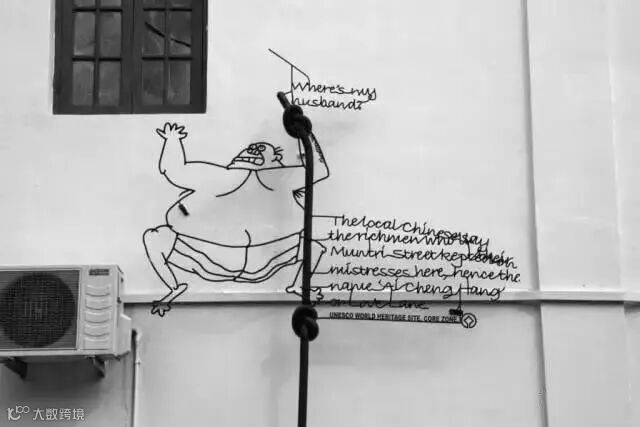 Where's my
husband?
The local Chinese say
the richmen who
Muntri Street kept their
mistresses here, hence the
name 'Ai Cheng Hang
or Love Lane
UNESCO WORLD HERITAGE SITE, CORE ZONE
大数跨境